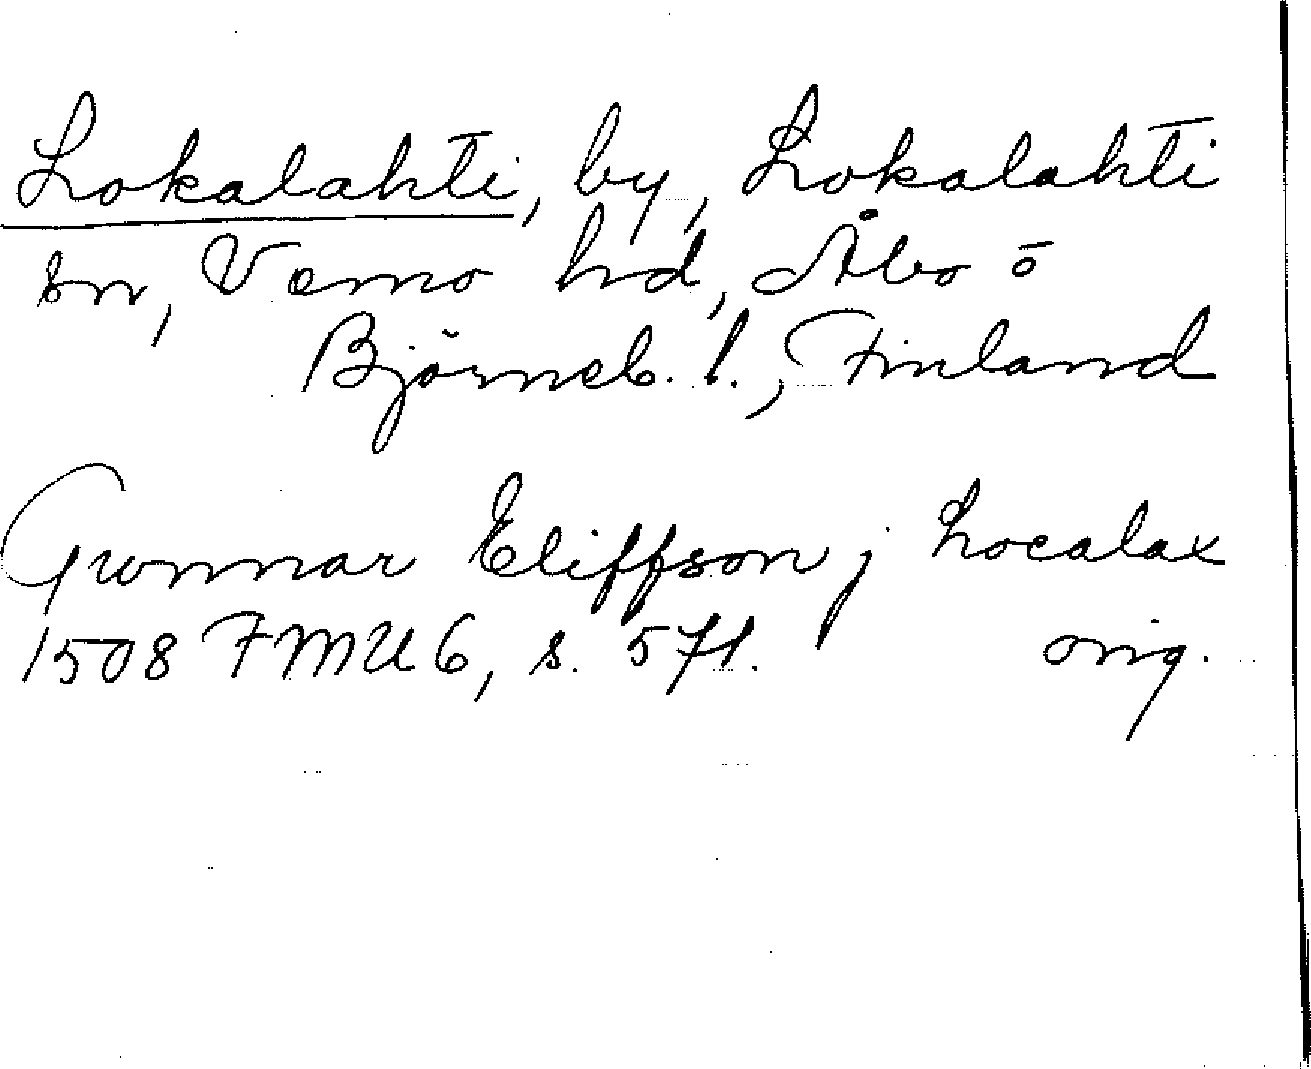 Lokalahti, by, Lokalahti
sn, Vemo hd, Åbo o
Björneb. l., Finland
Gunnar Eliffson j Localax
1508 FMU 6, s. 571. orig.